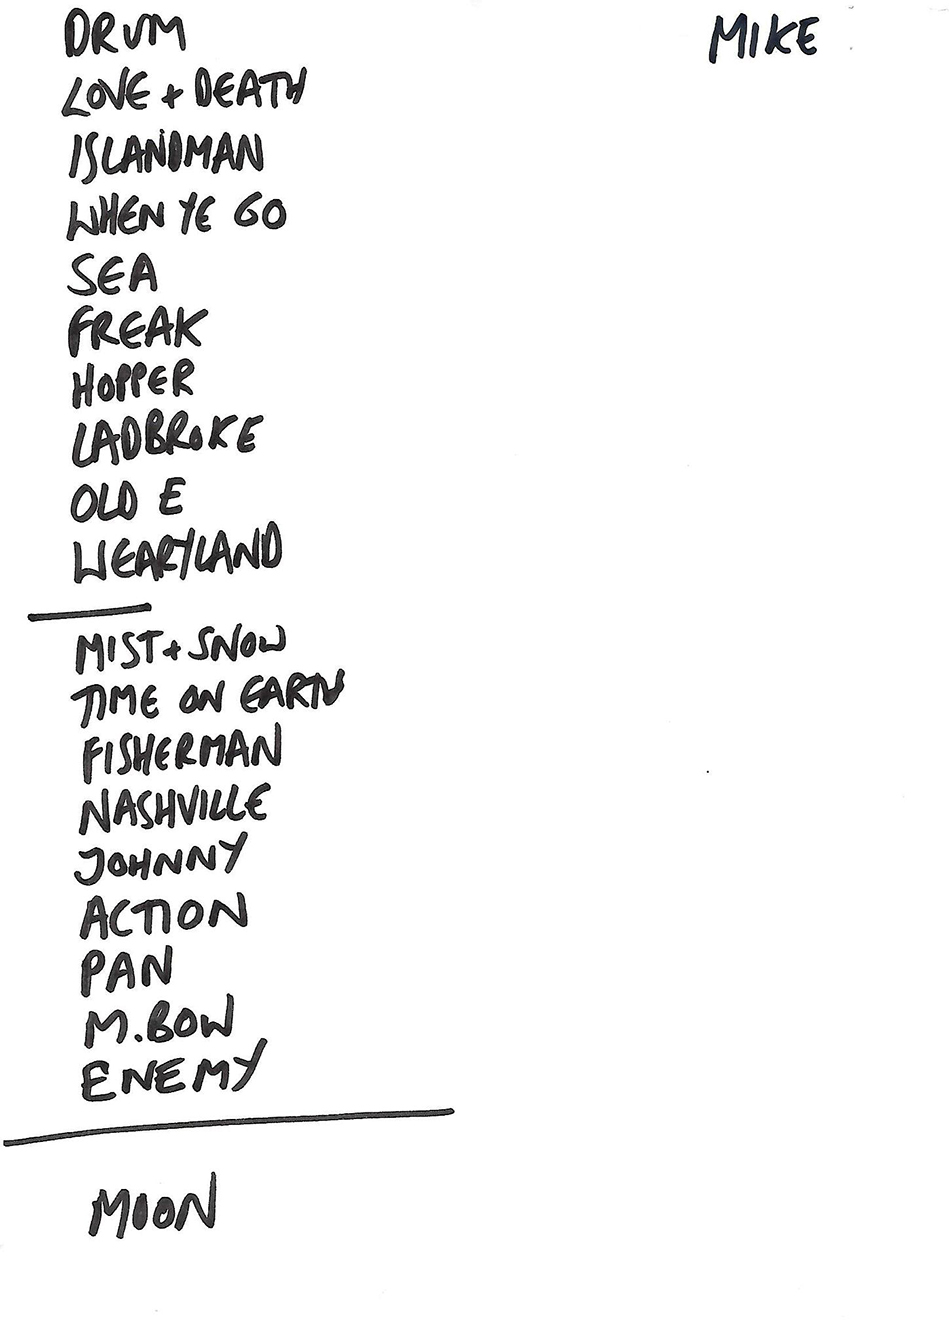 DRUM
MIKE
LOVE + DEATH
ISLANDMAN
WHEN YE GO
SEA
FREAK
HOPPER
LADBROKE
OLD E
WEARYLAND
MIST + SNOW
TIME ON EARTH
FISHERMAN
NASHVILLE
JOHNNY
ACTION
PAN
M.BOW
ENEMY
MOON